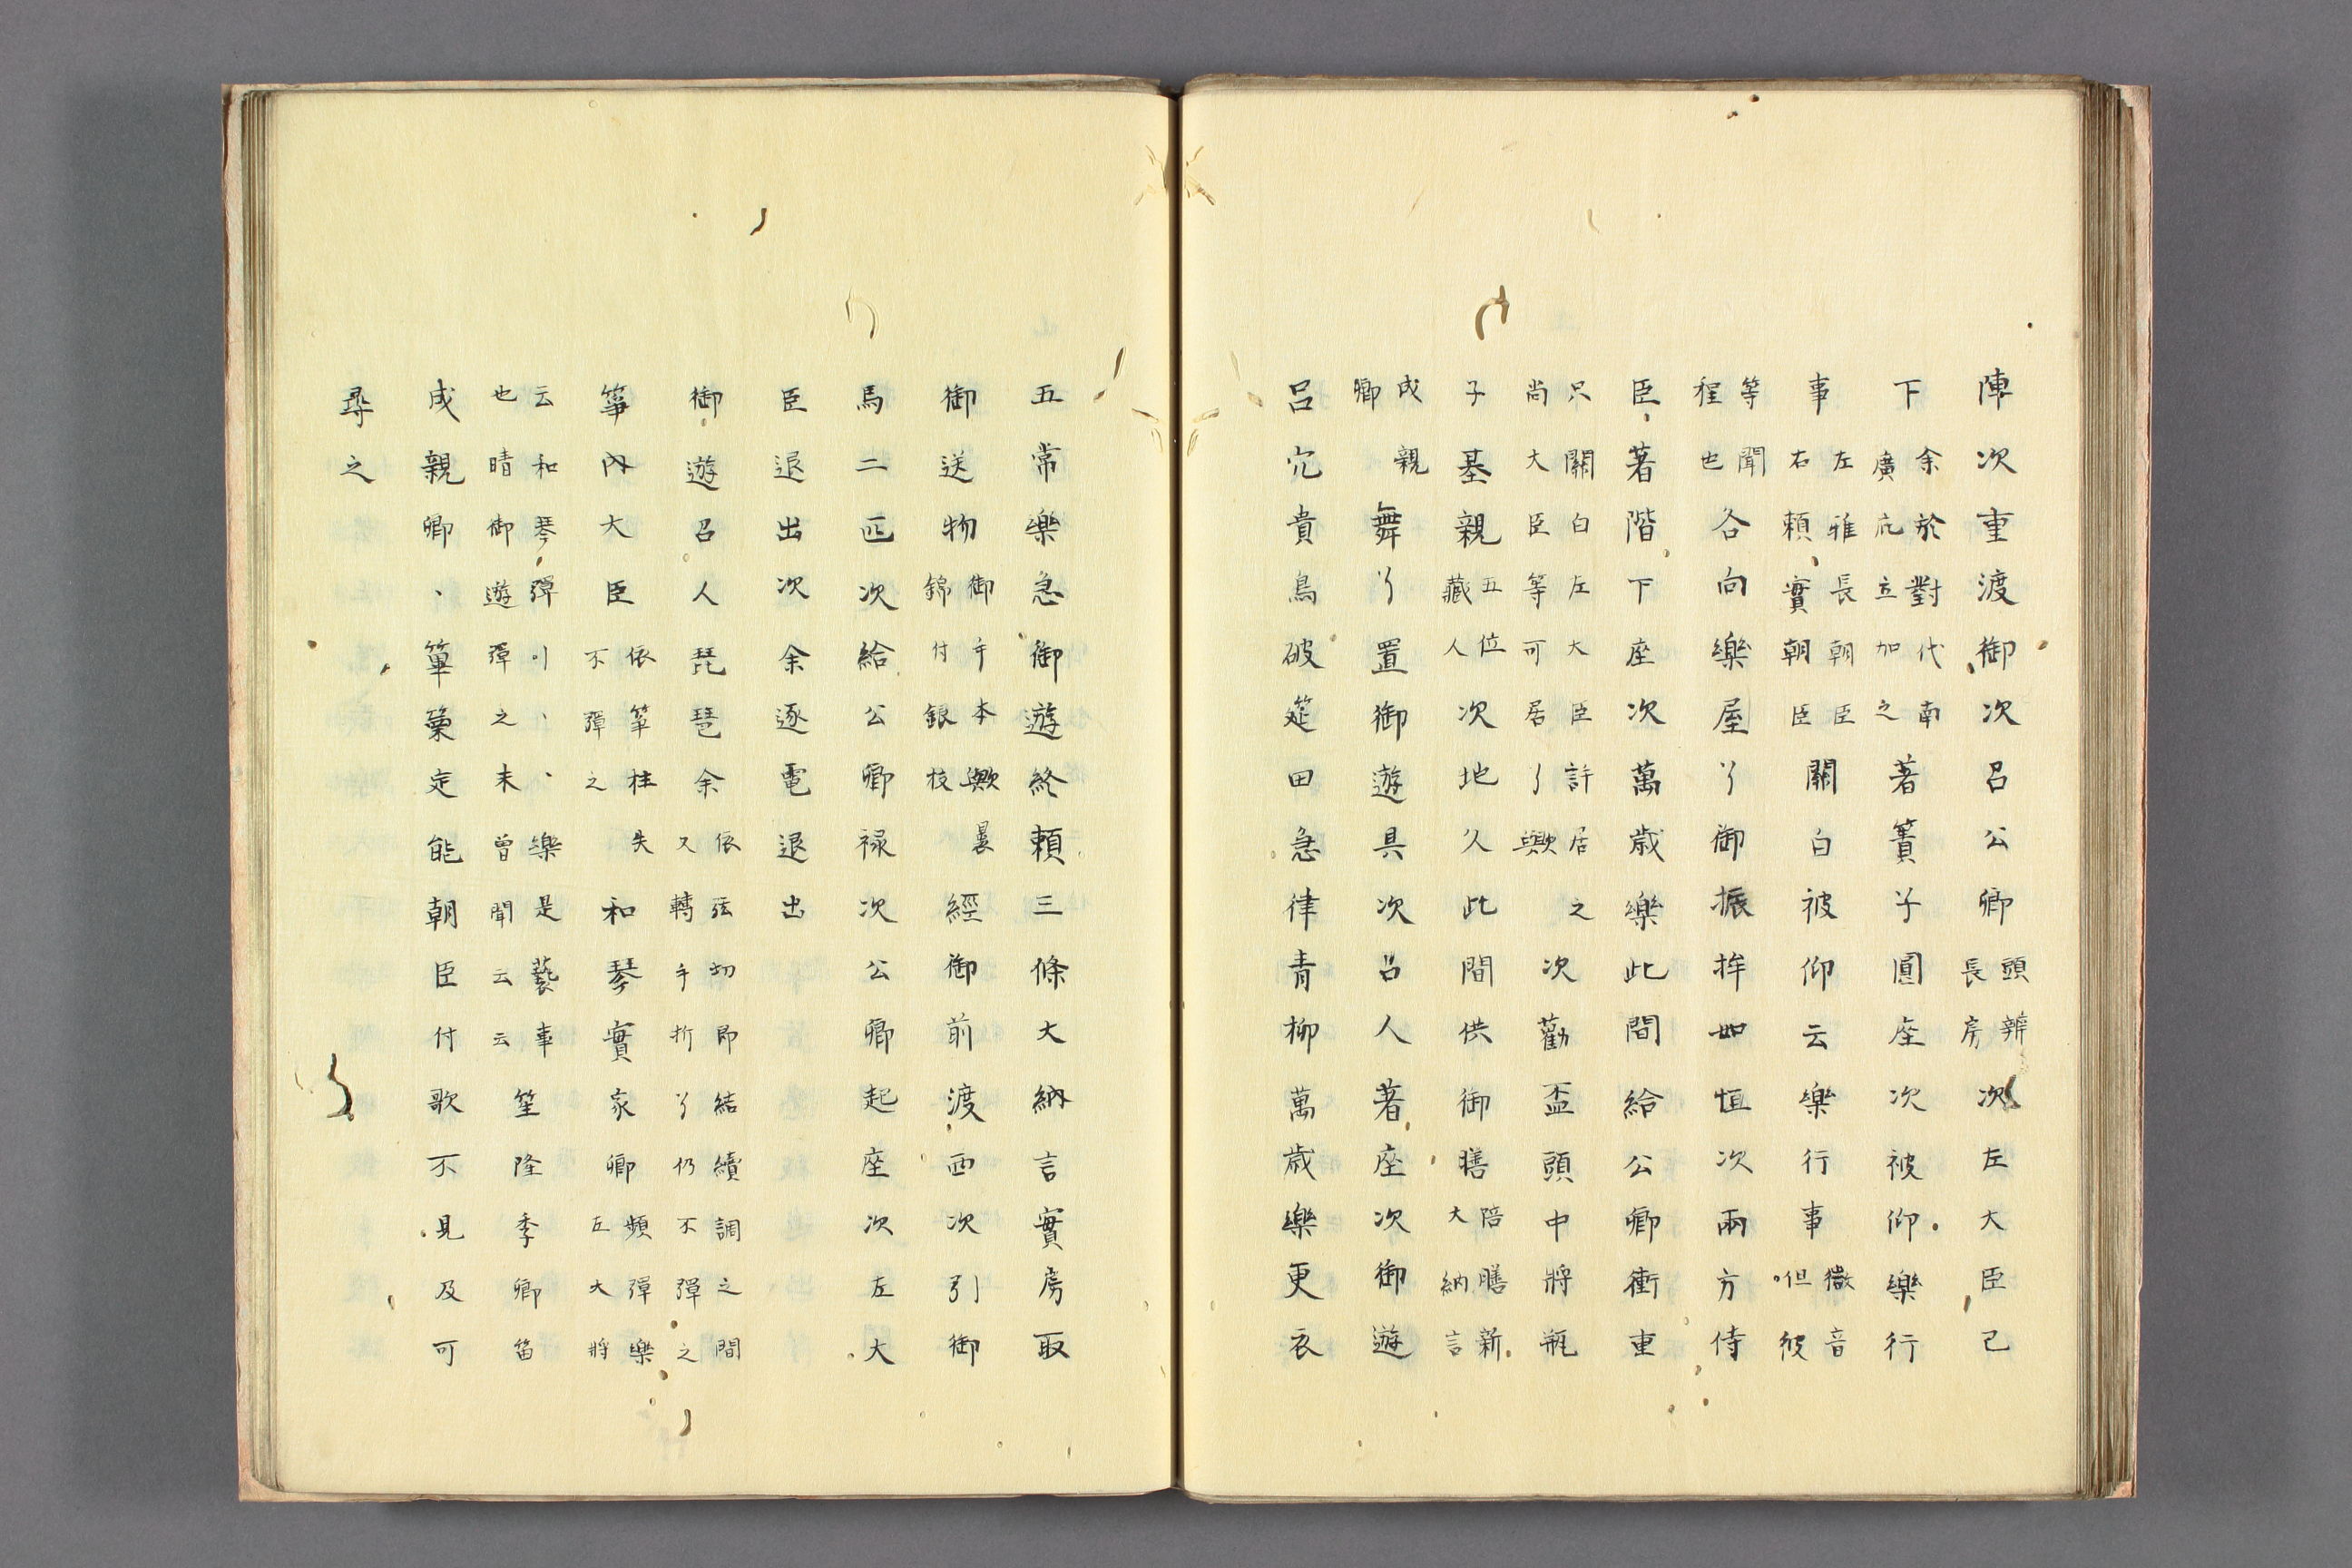 陣次重渡御次召公卿頭辨長房次左大臣已
下余於對代南廣庇立加之著簀子圓座次被仰樂行
事左雅長朝臣右頼實朝臣關白被仰云樂行事微音但彼
等聞程也各向樂屋了御振桙如恒次兩方侍
臣著階下座次萬歳樂此間給公卿衝重
只關白左大臣許居之尚大臣等可居了歟次勸盃頭中將瓶
子基親五位藏人次地久此間供御膳陪膳新大納言
成親卿舞了置御遊具次召人著座次御遊
呂穴貴鳥破筵田急律青柳萬歳樂更衣
五常樂急御遊終頼三條大納言實房取
御送物御手本歟裹錦付銀枝經御前渡西次引御
馬二匹次給公卿禄次公卿起座次左大
臣退出次余逐電退出
御遊召人琵琶余依弦切即結續調之間又轉手折了仍不彈之
箏內大臣依箏柱失不彈之和琴實家卿頻彈樂左大將
云和琴彈引、、樂是藝事也晴御遊彈之未曾聞云云笙隆季卿笛
成親卿、篳篥定能朝臣付歌不見及可
尋之